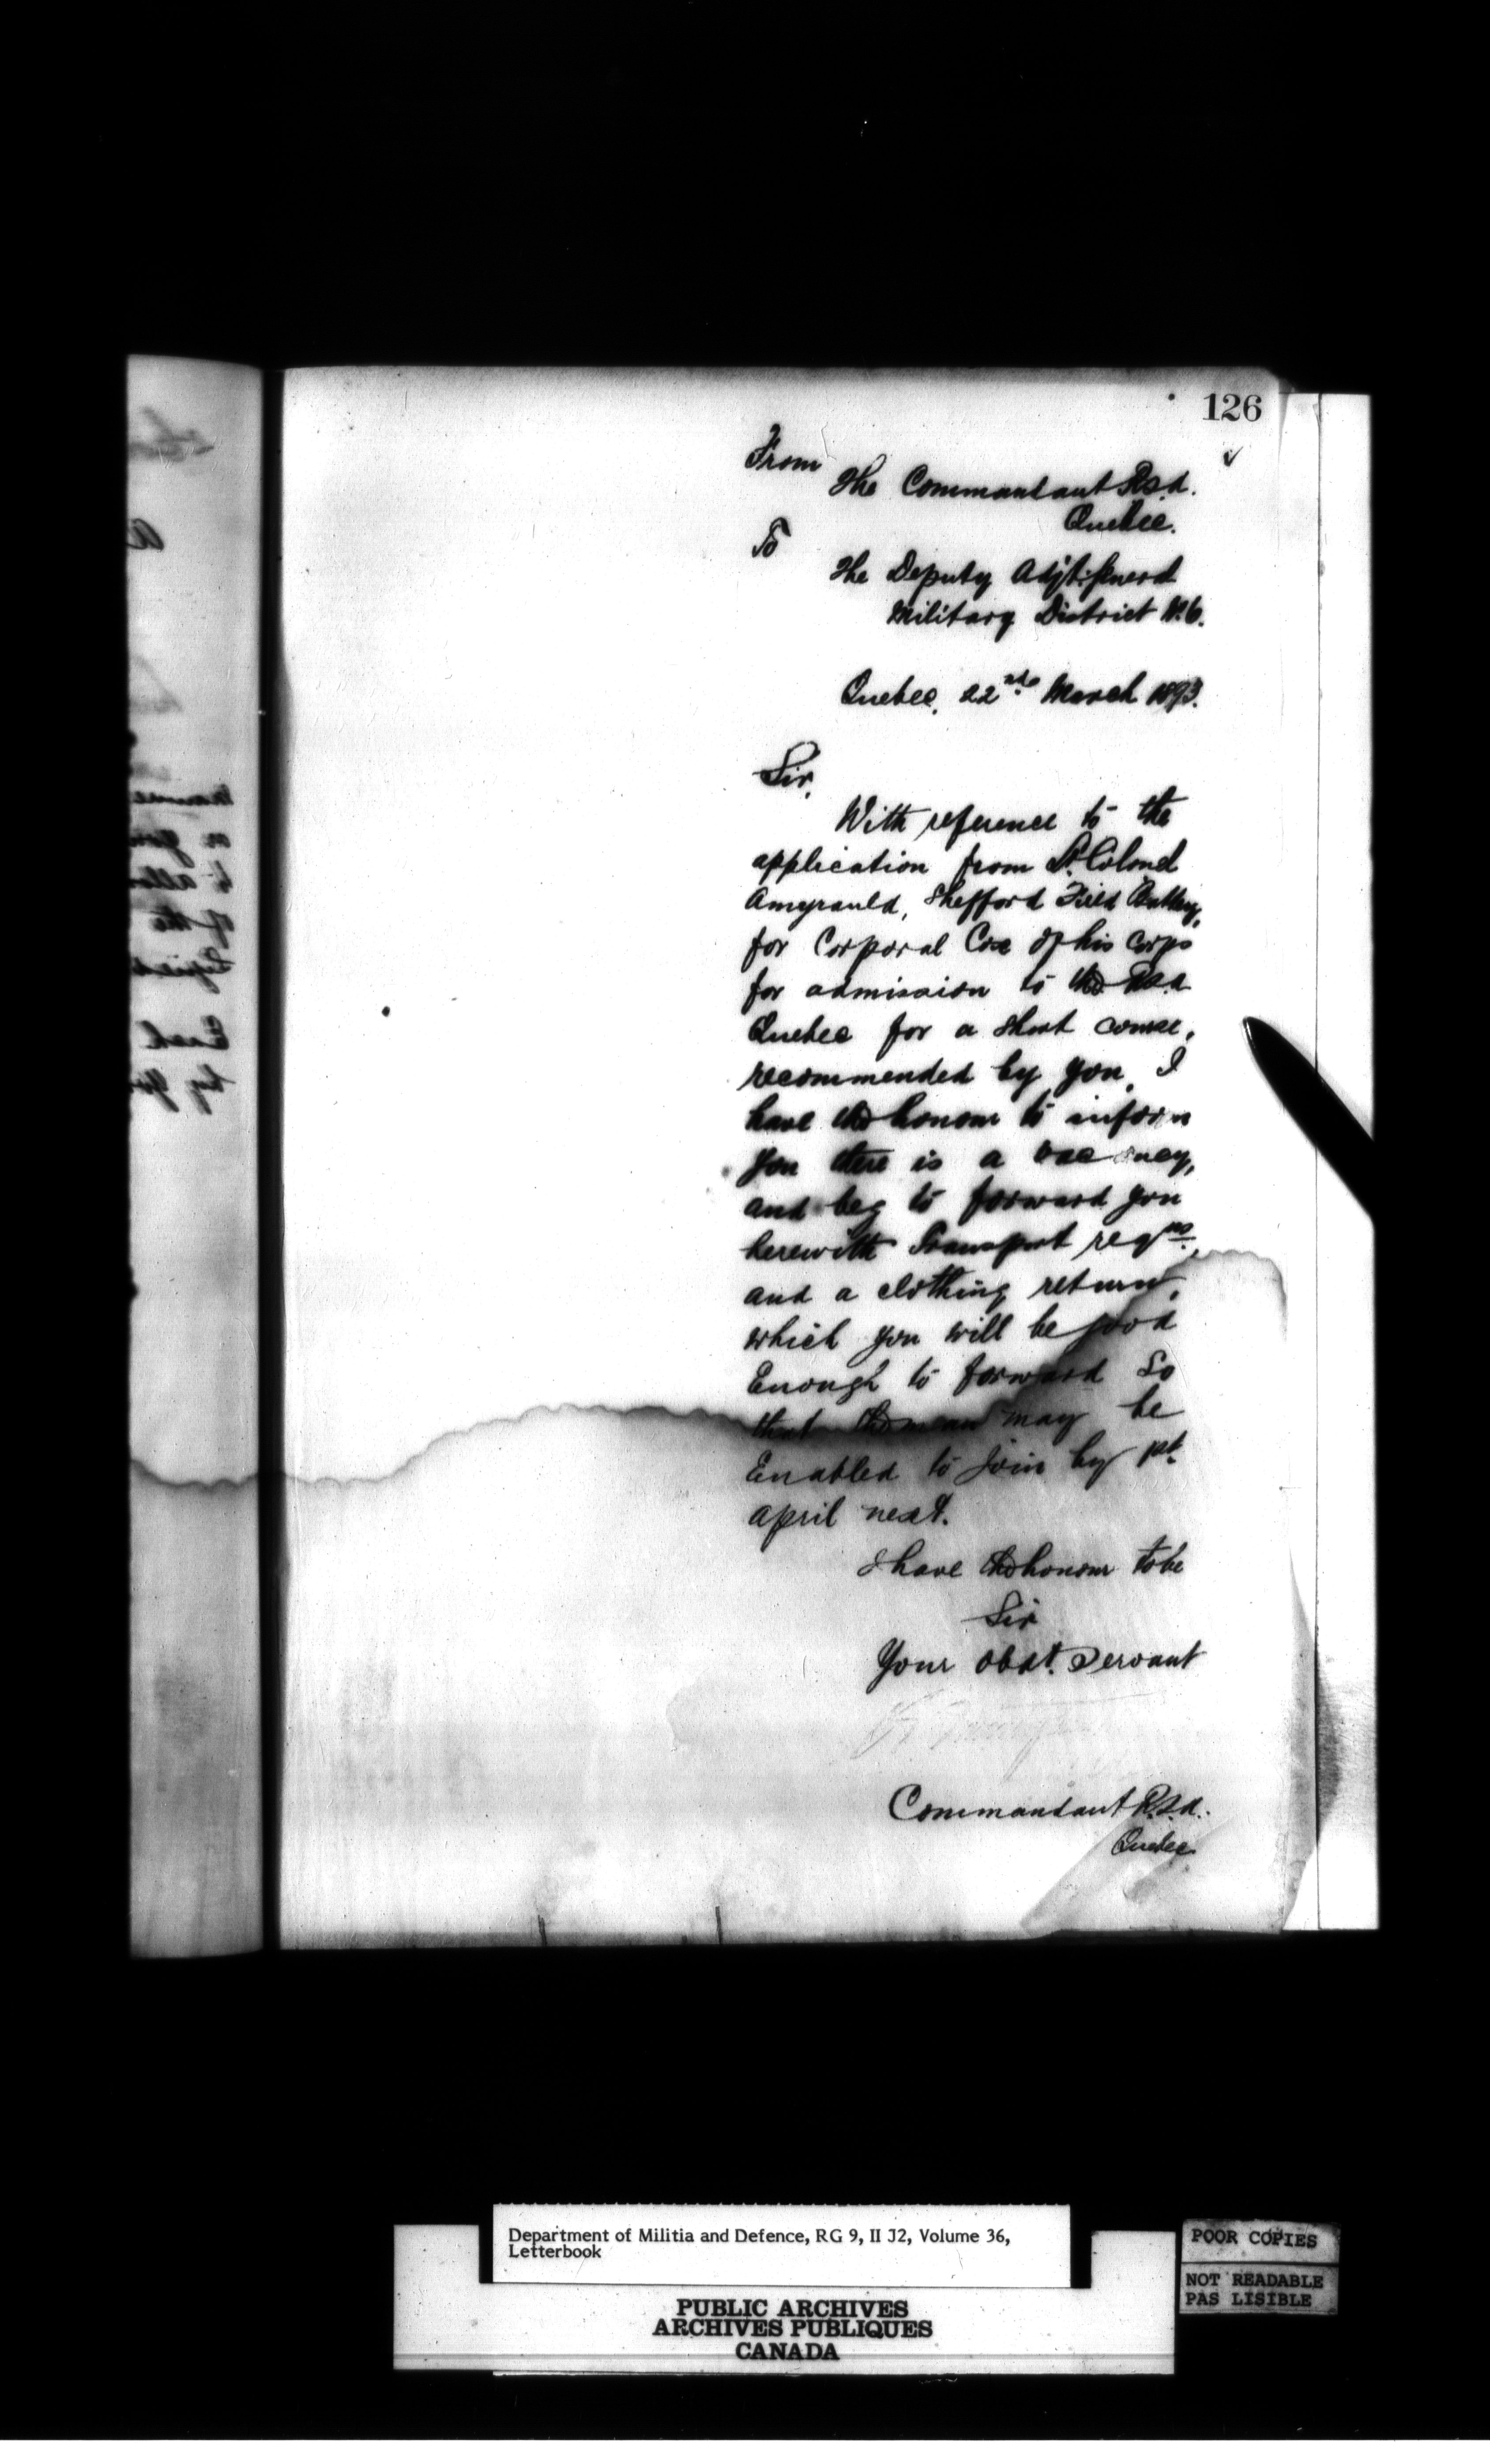 126
From
The Commandant R.S.A.
Quebec.
To
The Deputy Adjt. General
Military District No. 6.
Quebec, 22nd March 1893.
Sir,
With reference to the
application from Lt. Colonel
Amyrauld, Shefford Field Battery,
for Corporal Cox of his Corps
for admission to the R.S.A
Quebec for a Short course,
recommended by you, I
have the honour to inform
you there is a vacancy,
and beg to forward you
herewith Transport reqns.,
and a clothing return,
which you will be good
Enough to forward So
that the man may be
Enabled to join by 1st.
April next.
I have the honour to be
Sir
Your Obdt. Servant
Commandant R.S.A.
Quebec
Department of Militia and Defence, RG 9, II J2, Volume 36,
Letterbook
PUBLIC ARCHIVES
ARCHIVES PUBLIQUES
CANADA
POOR COPIES
NOT READABLE
PAS LISIBLE